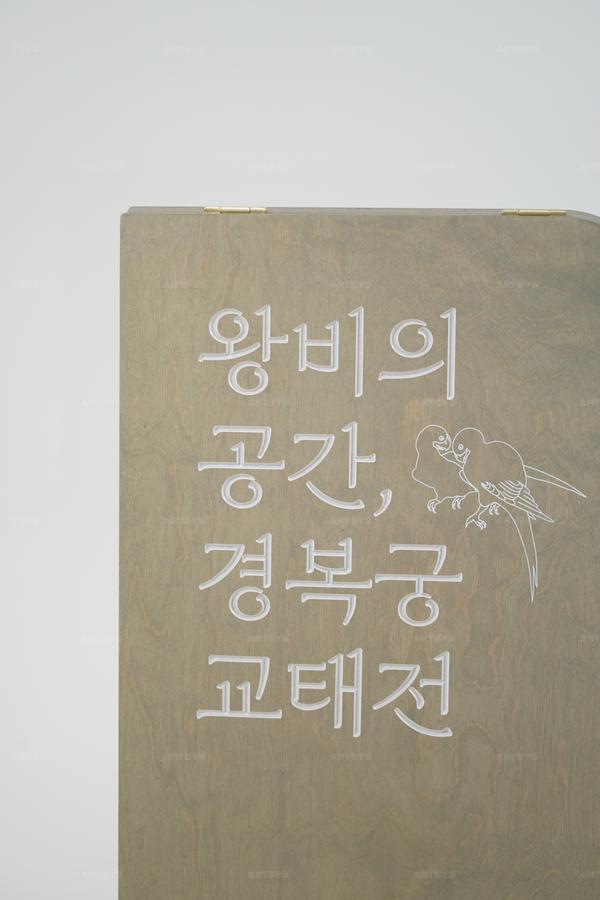 왕비의
공간,
경복궁
교태전